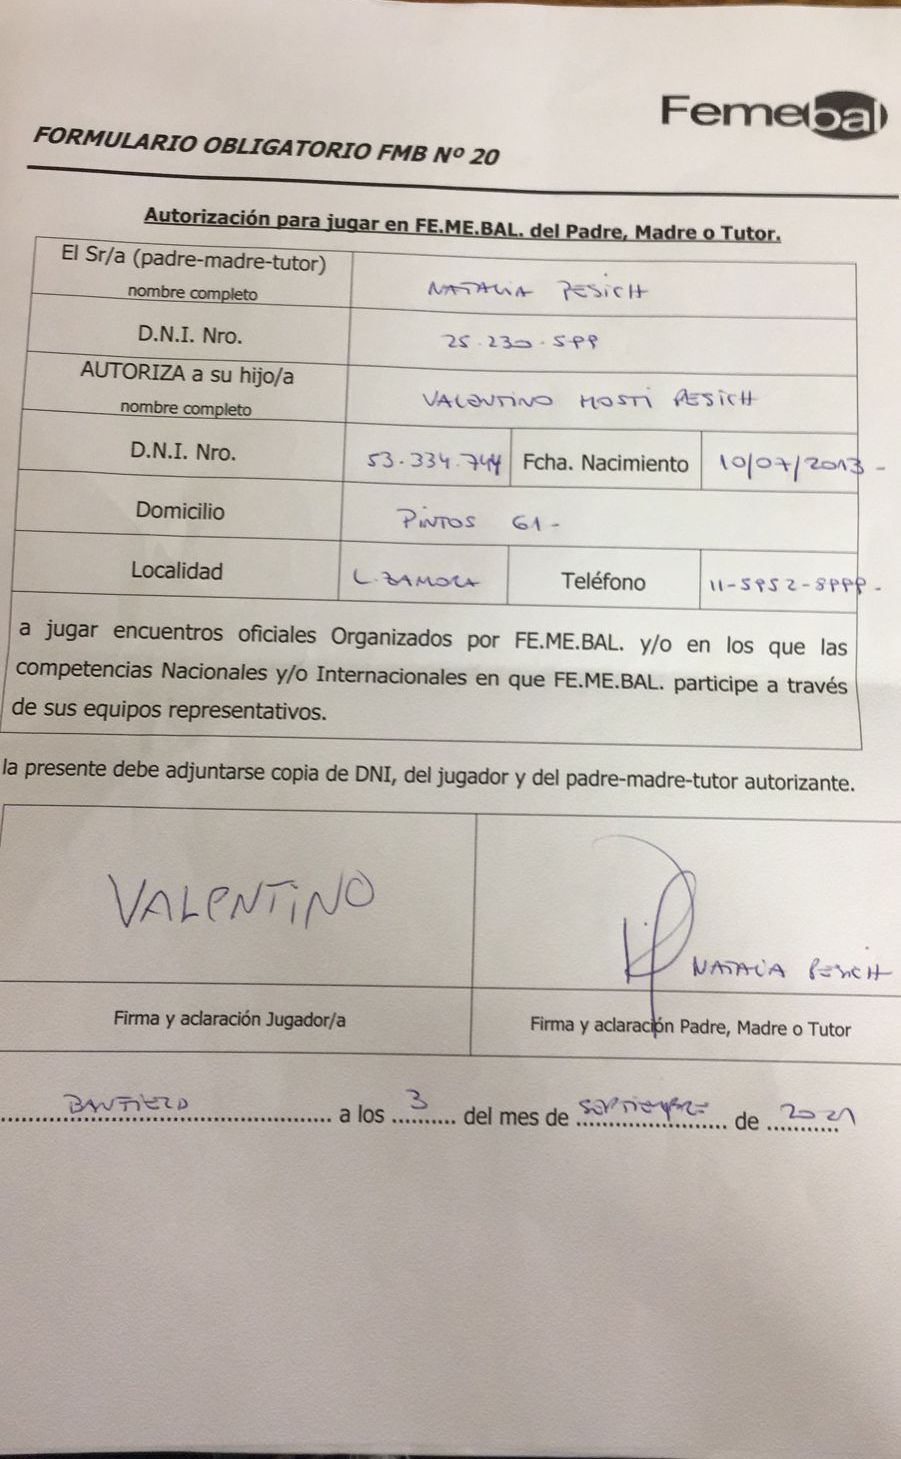 Femebal
FORMULARIO OBLIGATORIO FMB Nº 20
Autorización para jugar en FE.ME.BAL. del Padre, Madre o Tutor.
El Sr/a (padre-madre-tutor) nombre completo NATALIA PESICH
D.N.I. Nro. 25.230.599
AUTORIZA a su hijo/a nombre completo VALENTINO MOSTI PESICH
D.N.I. Nro. 53.334.744 Fcha. Nacimiento 10/07/2013-
Domicilio PINTOS 61-
Localidad L. ZAMORA Teléfono 11-5952-8999-
a jugar encuentros oficiales Organizados por FE.ME.BAL. y/o en los que las
competencias Nacionales y/o Internacionales en que FE.ME.BAL. participe a través
de sus equipos representativos.
la presente debe adjuntarse copia de DNI, del jugador y del padre-madre-tutor autorizante.
VALENTINO
NATALIA PESICH
Firma y aclaración Jugador/a Firma y aclaración Padre, Madre o Tutor
BANFIELD a los 3 del mes de SEPTIEMBRE de 2021